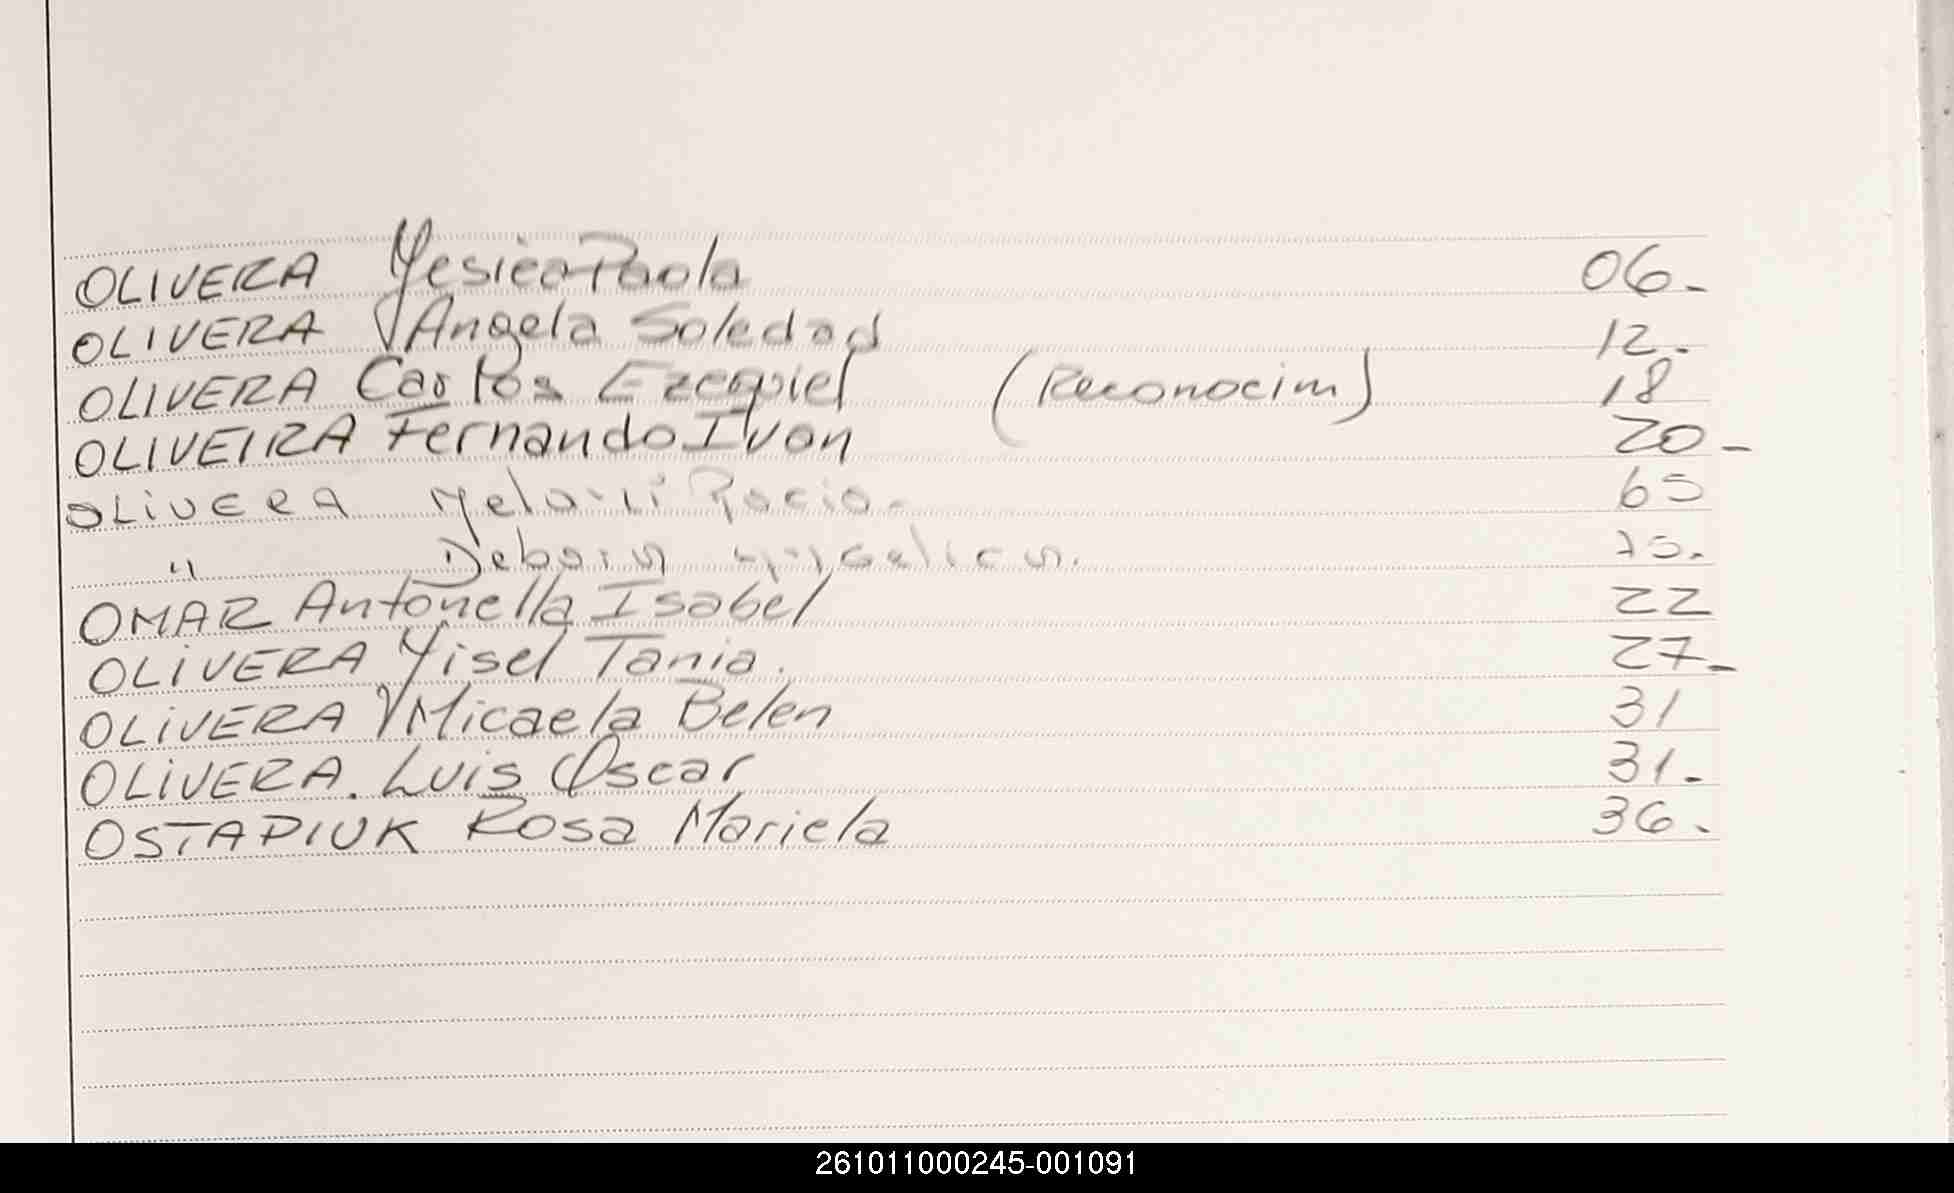 OLIVERA Yesica Paola 06.-
OLIVERA Angela Soledad 12.-
OLIVERA Carlos Ezequiel (Reconocim) 18
OLIVEIRA Fernando Ivan 20-
OLIVERA Melani Rocio. 65
" Debora Angelica. 75.
OMAR Antonella Isabel 22
OLIVERA Yisel Tania. 27-
OLIVERA Micaela Belen 31
OLIVERA. Luis Oscar 31.-
OSTAPIUK Rosa Mariela 36.
261011000245-001091